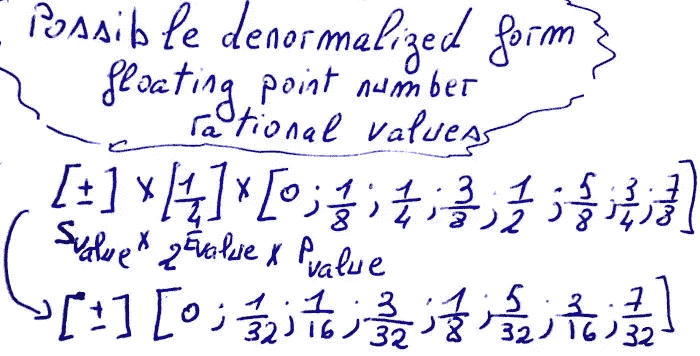 Possible denormalized form
floating point number
rational values
[±] × [1/4] × [0 ; 1/8 ; 1/4 ; 3/8 ; 1/2 ; 5/8 ; 3/4 ; 7/8]
Svalue × 2^Evalue × Pvalue
[±] [0 ; 1/32 ; 1/16 ; 3/32 ; 1/8 ; 5/32 ; 3/16 ; 7/32]